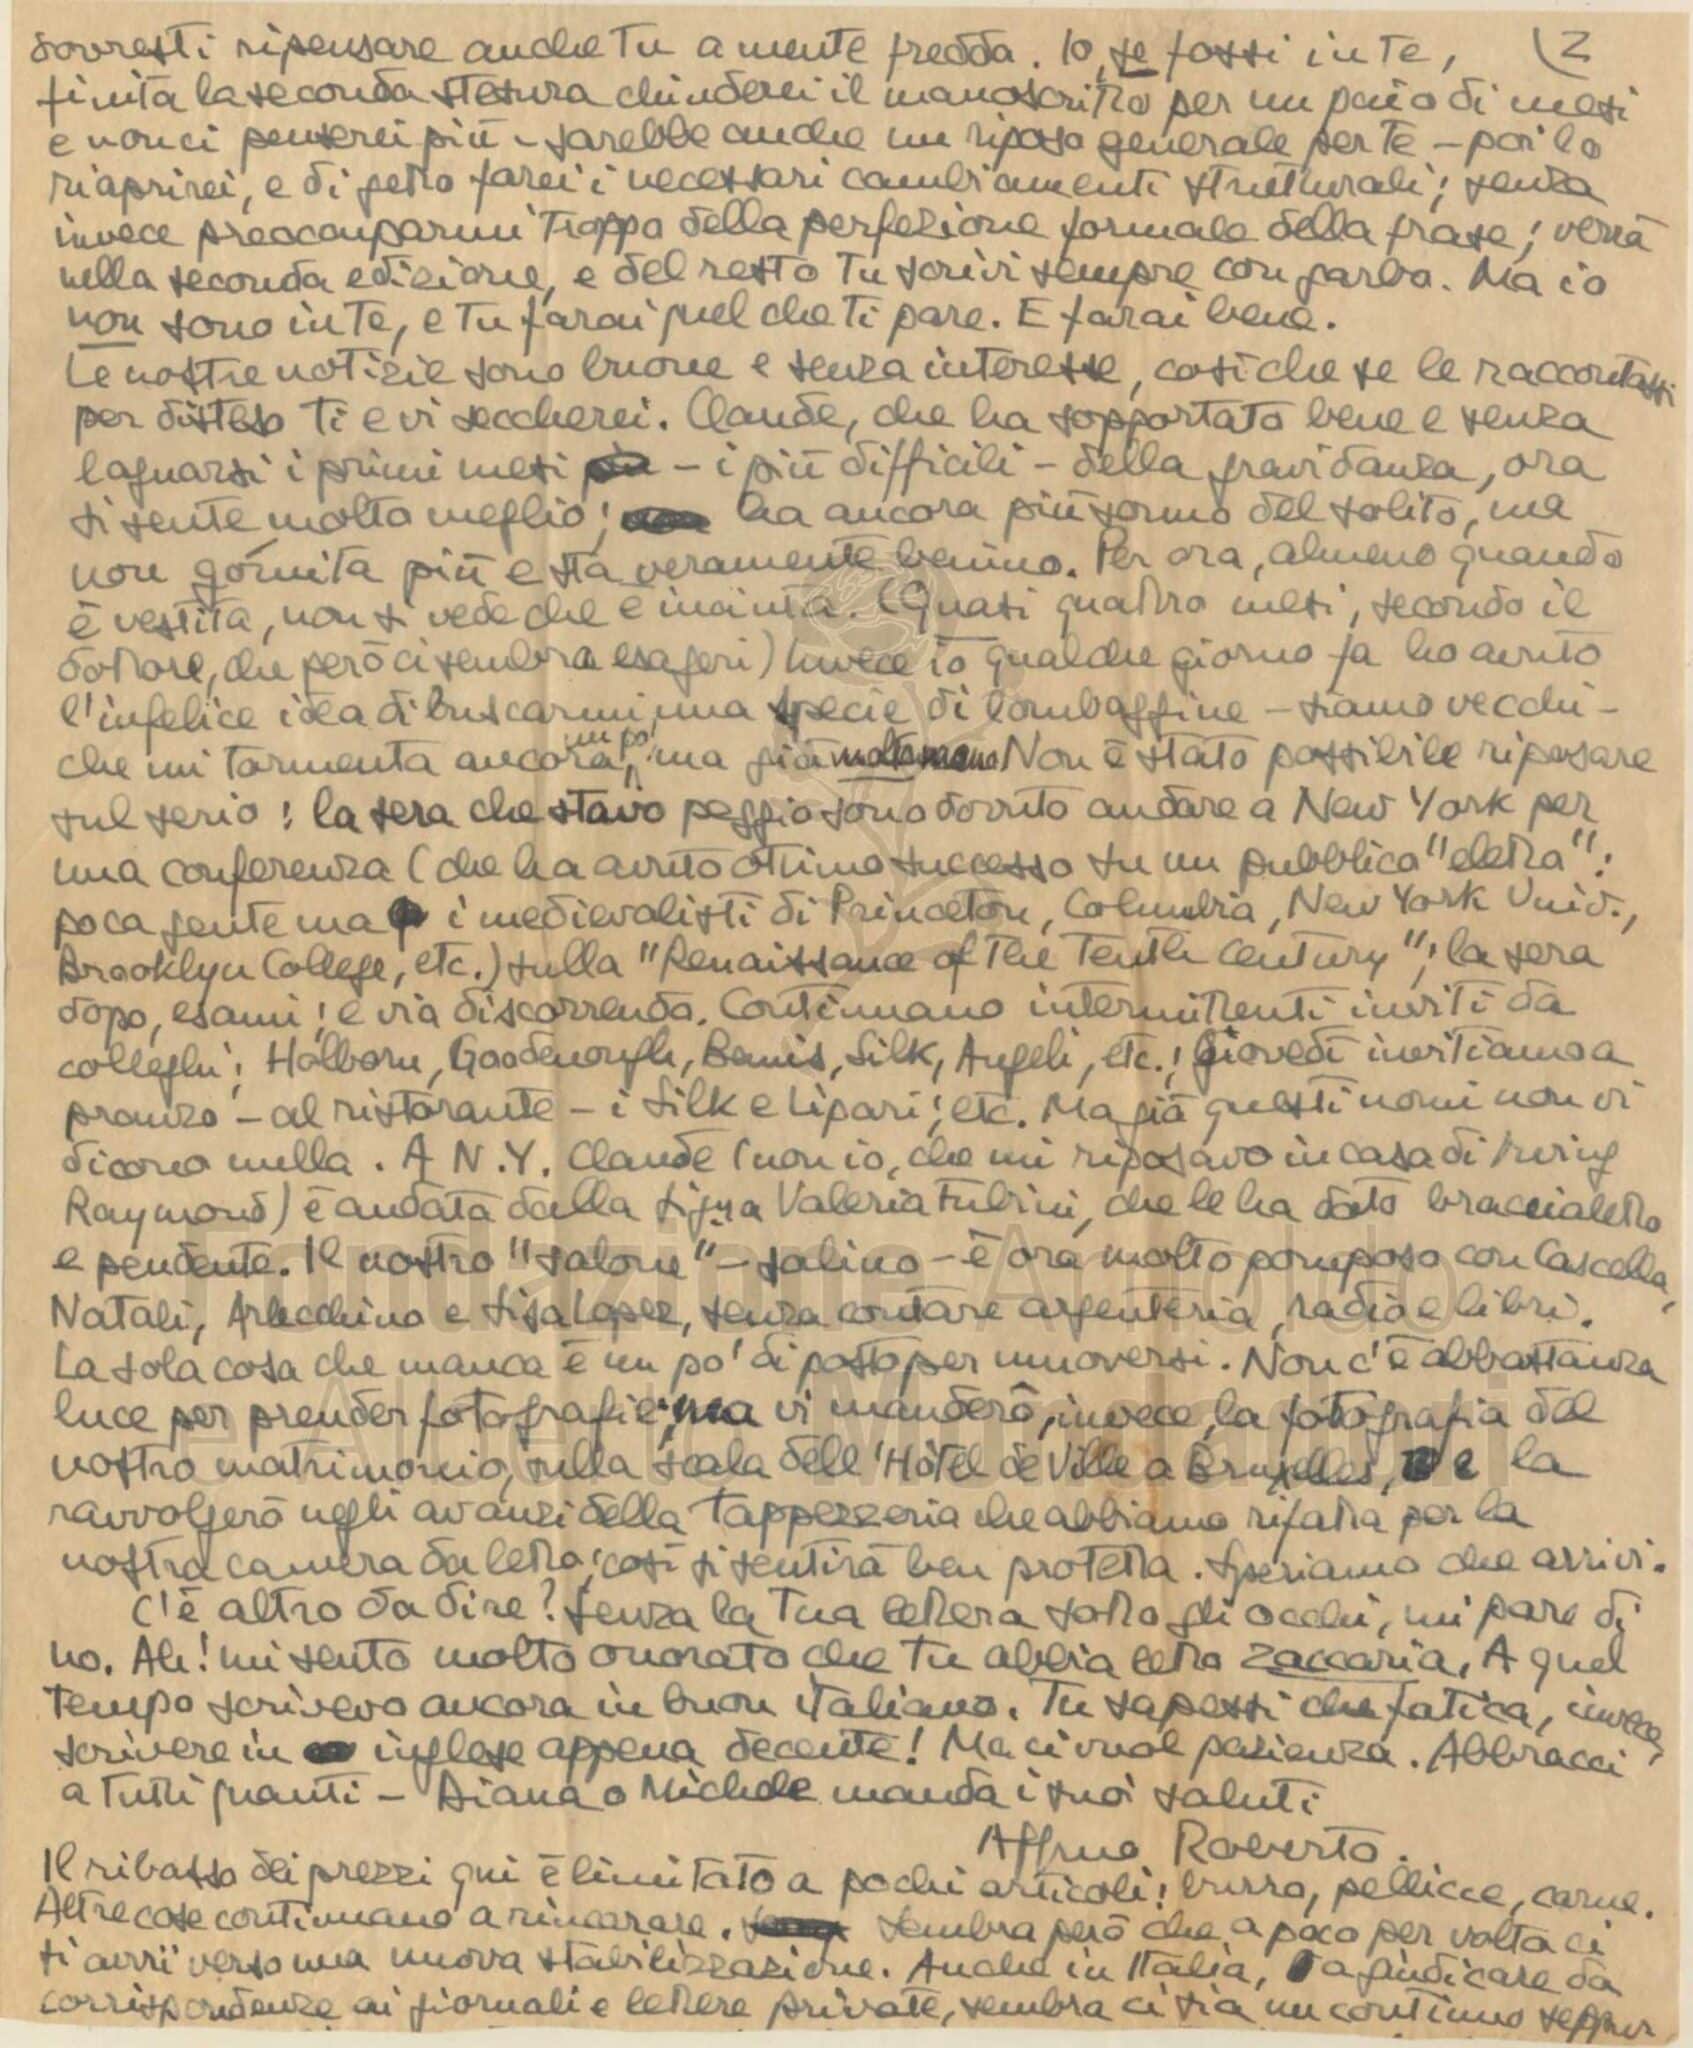 dovresti ripensare anche tu a mente fredda. Io, se fossi in te, (2
finita la seconda stesura chiuderei il manoscritto per un paio di mesi
e non ci penserei più – sarebbe anche un riposo generale per te – poi lo
riaprirei, e di getto farei i necessari cambiamenti strutturali; senza
invece preoccuparmi troppo della perfezione formale della frase; verrà
nella seconda edizione, e del resto tu scrivi sempre con garbo. Ma io
non sono in te, e tu farai quel che ti pare. E farai bene.
Le nostre notizie sono buone e senza interesse, cosicchè se le raccontassi
per disteso ti e vi seccherei. Claude, che ha sopportato bene e senza
lagnarsi i primi mesi – i più difficili – della gravidanza, ora
si sente molto meglio; ha ancora più sonno del solito, ma
non gòmita più e sta veramente benino. Per ora, almeno quando
è vestita, non si vede che è incinta. (Quasi quattro mesi, secondo il
dottore, che però ci sembra esageri) Invece io qualche giorno fa ho avuto
l'infelice idea di buscarmi una specie di lombaggine – siamo vecchi –
che mi tormenta ancora un po', ma già molto meno. Non è stato possibile riposare
sul serio: la sera che stavo peggio sono dovuto andare a New York per
una conferenza (che ha avuto ottimo successo su un pubblico "eletto":
poca gente ma i medievalisti di Princeton, Columbia, New York Univ.,
Brooklyn College, etc.) sulla "Renaissance of the Tenth Century"; la sera
dopo, esami; e via discorrendo. Continuano intermittenti inviti da
colleghi; Holborn, Goodenough, Bemis, Silk, Angeli, etc.; Giovedì invitiamo a
pranzo – al ristorante – i Silk e Lipari; etc. Ma già questi nomi non vi
dicono nulla. A N.Y. Claude (non io, che mi riposavo in casa di Irving
Raymond) è andata dalla sig.ra Valeria Fubini, che le ha dato braccialetto
e pendente. Il nostro "salone" – salino – è ora molto pomposo con Cascella,
Natali, Arlecchino e Lisa Lopez, senza contare argenteria, radio e libri.
La sola cosa che manca è un po' di posto per muoversi. Non c'è abbastanza
luce per prender fotografie; ma vi manderò, invece, la fotografia del
nostro matrimonio, sulla scala dell'Hôtel de Ville a Bruxelles, e la
ravvolgerò negli avanzi della tappezzeria che abbiamo rifatta per la
nostra camera da letto; così si sentirà ben protetta. Speriamo che arrivi.
C'è altro da dire? Senza la tua lettera sotto gli occhi, mi pare di
no. Ah! mi sento molto onorato che tu abbia letto Zaccaria. A quel
tempo scrivevo ancora in buon italiano. Tu sapessi che fatica, invece,
scrivere in inglese appena decente! Ma ci vuol pazienza. Abbracci
a tutti quanti – Diana o Michele manda i suoi saluti
Affmo Roberto.
Il ribasso dei prezzi qui è limitato a pochi articoli: burro, pellicce, carne.
Altre cose continuano a rincarare. Sembra però che a poco per volta ci
si avvii verso una nuova stabilizzazione. Anche in Italia, a giudicare da
corrispondenze ai giornali e lettere private, sembra ci sia un continuo seppur
Fondazione Arnoldo
e Alberto Mondadori